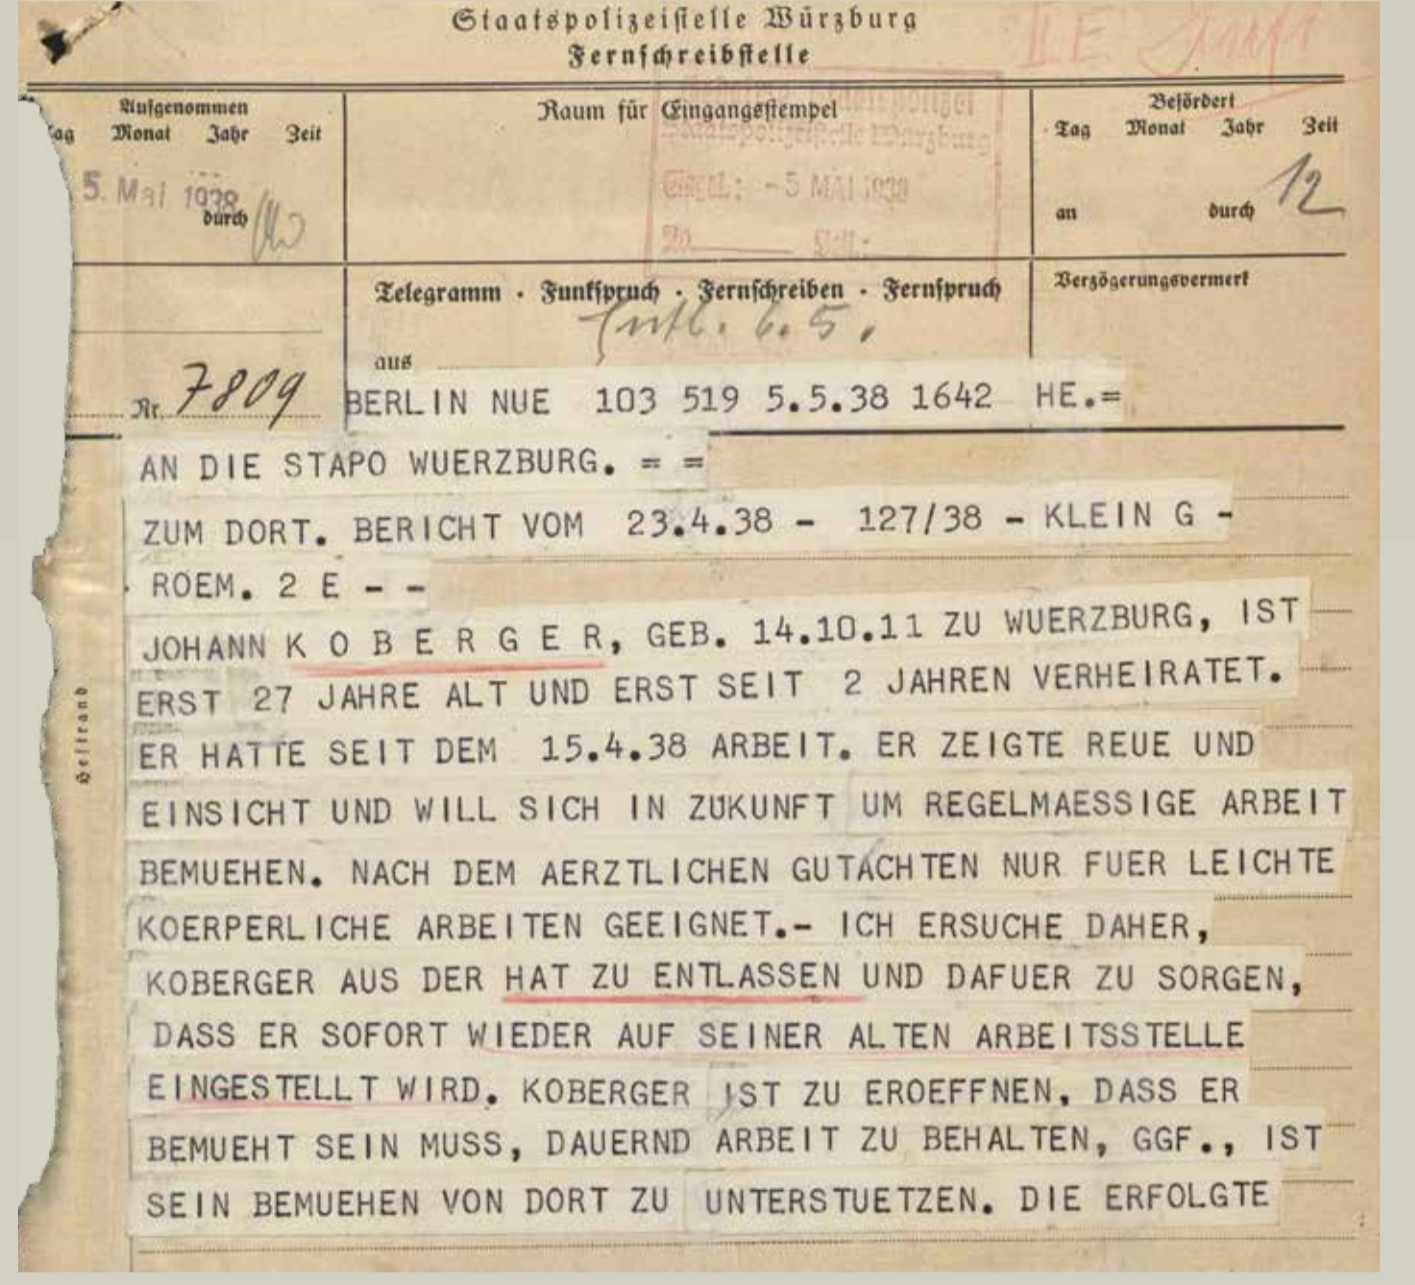 Staatspolizeistelle Würzburg
Fernschreibstelle
II E
Aufgenommen
Tag Monat Jahr Zeit
5. Mai 1938
durch
Raum für Eingangsstempel
Staatspolizeistelle Würzburg
Eingel.: - 5 MAI 1938
Befördert
Tag Monat Jahr Zeit
an durch 12
Telegramm · Funkspruch · Fernschreiben · Fernspruch
6.5.
aus
Verzögerungsvermerk
Nr. 7809
BERLIN NUE 103 519 5.5.38 1642 HE.=
AN DIE STAPO WUERZBURG. = =
ZUM DORT. BERICHT VOM 23.4.38 - 127/38 - KLEIN G -
ROEM. 2 E - -
JOHANN K O B E R G E R, GEB. 14.10.11 ZU WUERZBURG, IST
ERST 27 JAHRE ALT UND ERST SEIT 2 JAHREN VERHEIRATET.
ER HATTE SEIT DEM 15.4.38 ARBEIT. ER ZEIGTE REUE UND
EINSICHT UND WILL SICH IN ZUKUNFT UM REGELMAESSIGE ARBEIT
BEMUEHEN. NACH DEM AERZTLICHEN GUTACHTEN NUR FUER LEICHTE
KOERPERLICHE ARBEITEN GEEIGNET.- ICH ERSUCHE DAHER,
KOBERGER AUS DER HAT ZU ENTLASSEN UND DAFUER ZU SORGEN,
DASS ER SOFORT WIEDER AUF SEINER ALTEN ARBEITSSTELLE
EINGESTELLT WIRD. KOBERGER IST ZU EROEFFNEN, DASS ER
BEMUEHT SEIN MUSS, DAUERND ARBEIT ZU BEHALTEN, GGF., IST
SEIN BEMUEHEN VON DORT ZU UNTERSTUETZEN. DIE ERFOLGTE
Heftrand